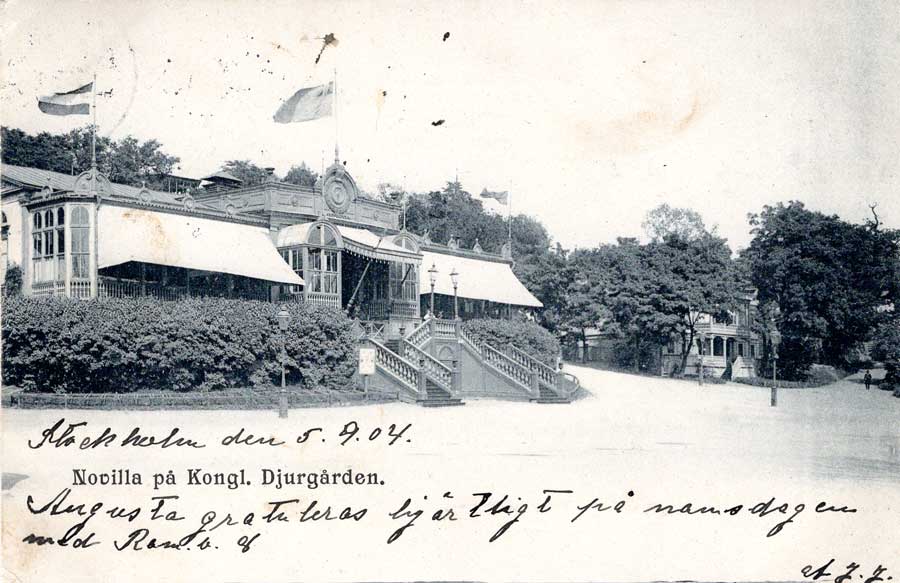 Stockholm den 5. 9. 04.
Novilla på Kongl. Djurgården.
Augusta gratuleras hjärtligt på namsdagen
med
af J. J.